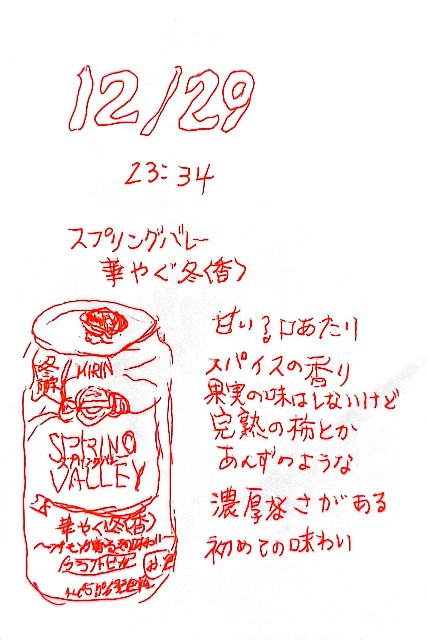 12/29
23:34
スプリングバレー
華やぐ冬〈香〉
甘い口あたり
スパイスの香り
果実の味はしないけど
完熟の柿とか
あんずのような
濃厚なさがある
初めての味わい
KIRIN
SPRING
スプリングバレー
VALLEY
華やぐ冬〈香〉
クラフトビール
お酒